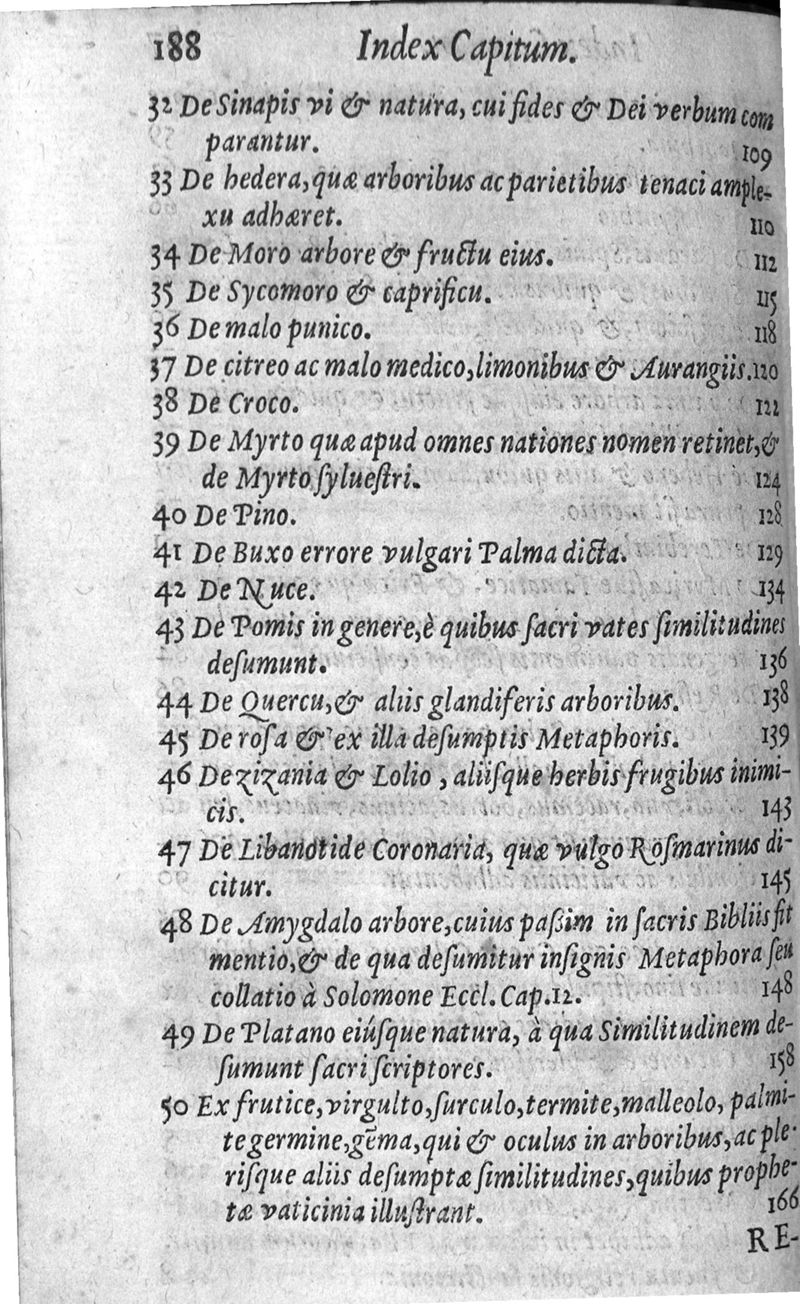 188 Index Capitum.
32 De Sinapis vi & natura, cui fides & Dei verbum com
parantur. 109
33 De hedera, quæ arboribus ac parietibus tenaci ample-
xu adhæret. 110
34 De Moro arbore & fructu eius. 112
35 De Sycomoro & caprificu. 115
36 De malo punico. 118
37 De citreo ac malo medico, limonibus & Aurangiis. 120
38 De Croco. 122
39 De Myrto quæ apud omnes nationes nomen retinet, &
de Myrto ſylueſtri. 124
40 De Pino. 128
41 De Buxo errore vulgari Palma dicta. 129
42 De Nuce. 134
43 De Pomis in genere, è quibus ſacri vates ſimilitudines
deſumunt. 136
44 De Quercu, & aliis glandiferis arboribus. 138
45 De roſa & ex illa deſumptis Metaphoris. 139
46 De zizania & Lolio, aliiſque herbis frugibus inimi-
cis. 143
47 De Libanotide Coronaria, quæ vulgo Roſmarinus di-
citur. 145
48 De Amygdalo arbore, cuius paßim in ſacris Bibliis fit
mentio, & de qua deſumitur inſignis Metaphora ſeu
collatio à Solomone Eccl. Cap. 12. 148
49 De Platano eiúſque natura, à qua Similitudinem de-
ſumunt ſacri ſcriptores. 158
50 Ex frutice, virgulto, ſurculo, termite, malleolo, palmi-
te germine, gēma, qui & oculus in arboribus, ac ple-
riſque aliis deſumptæ ſimilitudines, quibus prophe-
tæ vaticinia illuſtrant. 166
RE-